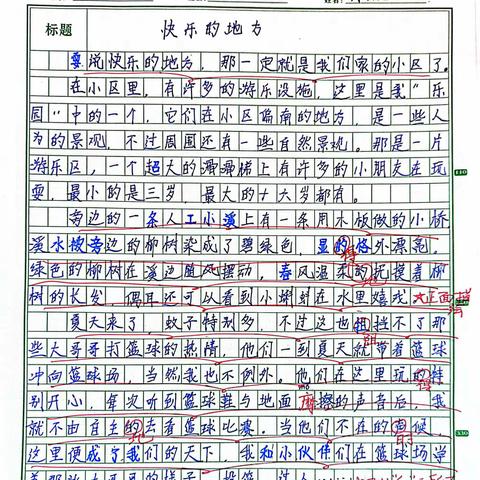 标题
快乐的地方
要说快乐的地方，那一定就是我们家的小区了。
在小区里，有许多的游乐设施，这里是我“乐
园”中的一个，它们在小区偏南的地方，是一些人
为的景观，不过周围还有一些自然景观。那是一片
游乐区，一个超大的滑滑梯上有许多的小朋友在玩
耍，最小的是三岁，最大的十六岁都有。
110
旁边的一条人工小溪上有一条用木板做的小桥
溪水被旁边的柳树染成了碧绿色，显的格外漂亮，
得
绿色的柳树在溪边随风摆动，春风温柔的抚摸着柳
地
树的长发，偶耳还可从看到小蝌蚪在水里嬉戏
正面描
夏天来了，蚊子特别多，不过这也阻挡不了那
阻
些大哥哥打篮球的热情，他们一到夏天就带着篮球
冲向篮球场，当然我也不例外。他们在这里玩的特
得
别开心，每次听到篮球鞋与地面摩擦的声音后，我
mó
就不由自主的去看篮球比赛，当他们不在的时候，
地
时
330
这里便成了我们的天下，我和小伙伴们在篮球场学